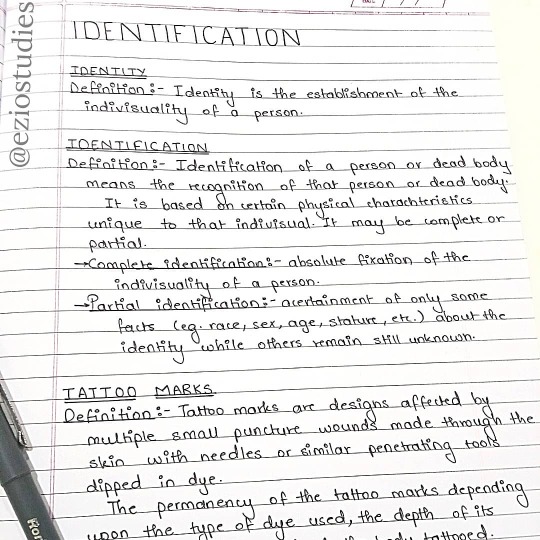 @eziostudies
IDENTIFICATION
IDENTITY
Definition:- Identity is the establishment of the
indivisuality of a person.
IDENTIFICATION
Definition:- Identification of a person or dead body
means the recognition of that person or dead body.
It is based on certain physical charachteristics
unique to that indivisual. It may be complete or
partial.
→Complete identification:- absolute fixation of the
indivisuality of a person.
→Partial identification:- acertainment of only some
facts (eg. race, sex, age, stature, etc.) about the
identity while others remain still unknown.
TATTOO MARKS.
Definition:- Tattoo marks are designs affected by
multiple small puncture wounds made through the
skin with needles or similar penetrating tools
dipped in dye.
The permanency of the tattoo marks depending
upon the type of dye used, the depth of its
body tattooed.